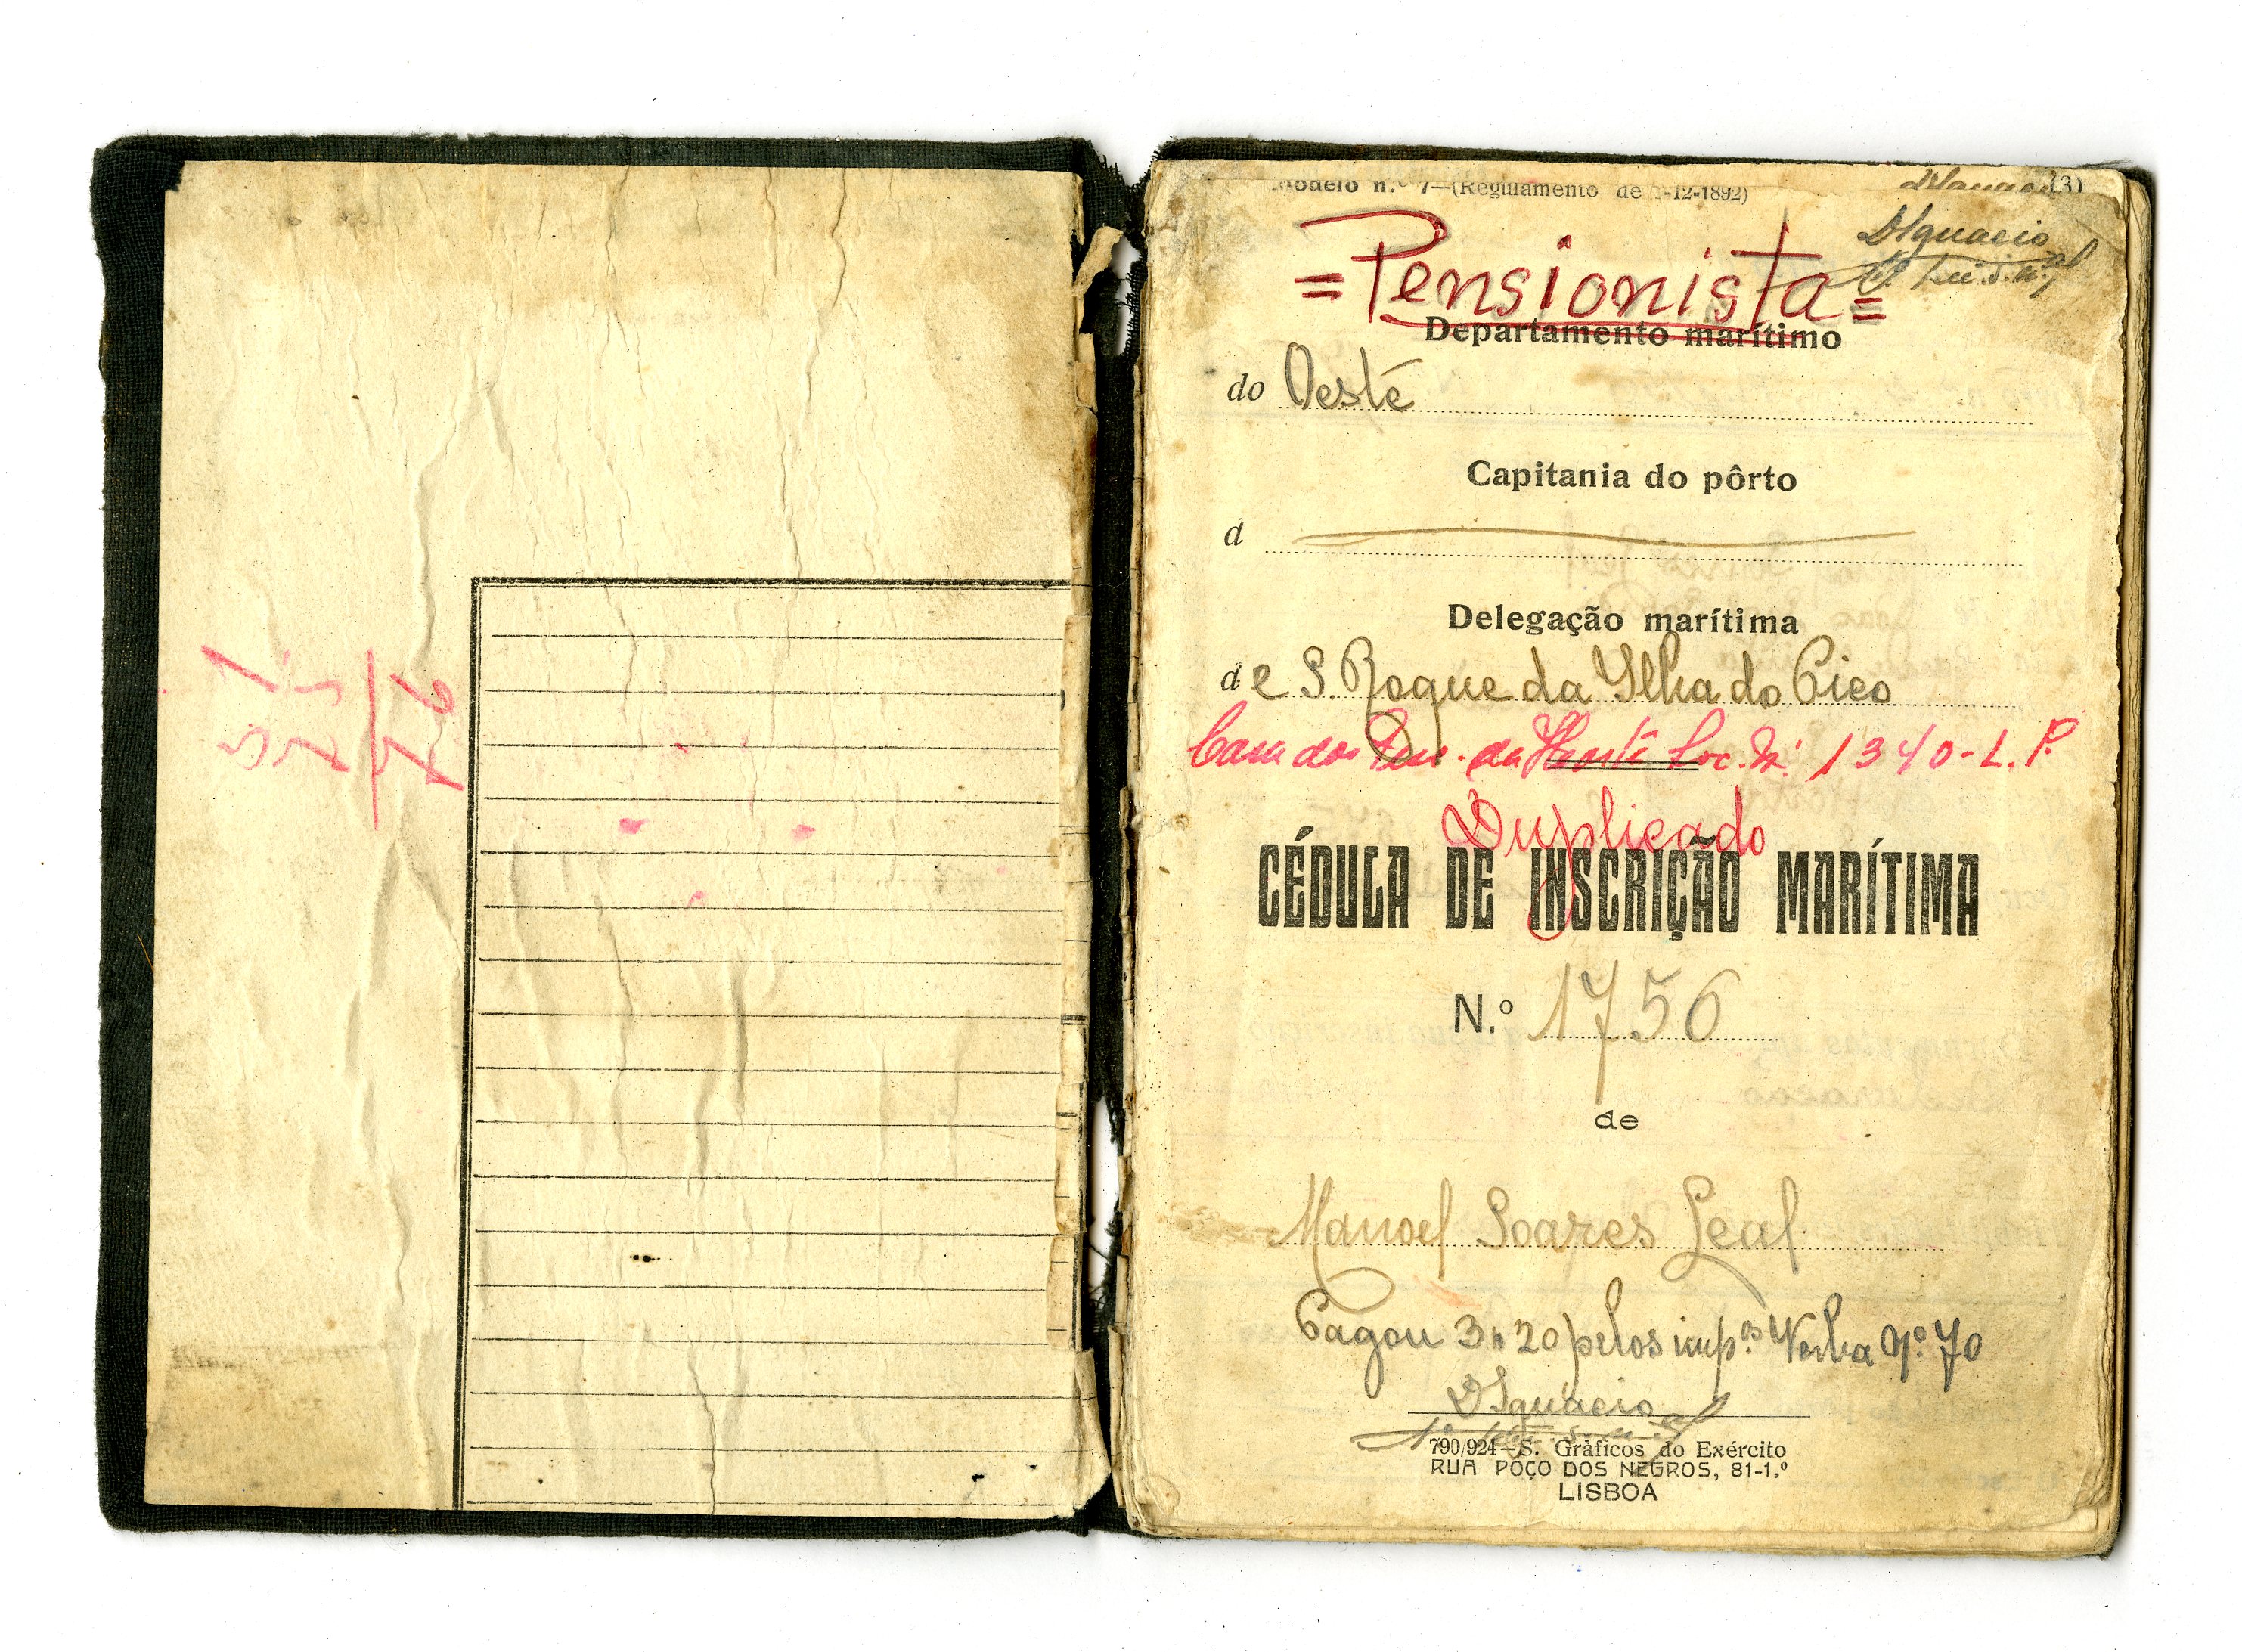 Modelo n.º 7—(Regulamento de -12-1892)
(3)
DIgnacio
=Pensionista=
Departamento marítimo
do Oeste
Capitania do pôrto
d
Delegação marítima
de S. Roque da Ilha do Pico
Casa dos Pes. da Horta Soc. N.º 1340-L.P.
Duplicado
CÉDULA DE INSCRIÇÃO MARÍTIMA
N.º 1756
de
Manoel Soares Leal
Pagou 3$20 pelos imp.os Verba Nº 70
DIgnacio
790/924—S. Gráficos do Exército
RUA POÇO DOS NEGROS, 81-1.º
LISBOA